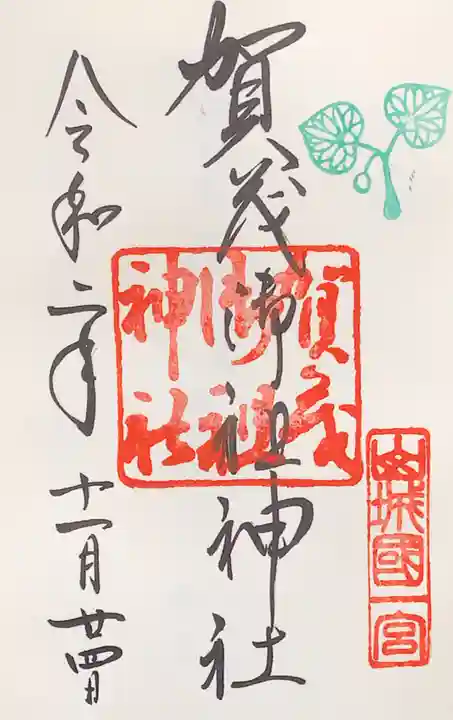 賀茂御祖神社
賀茂
御祖
神社
山城國一宮
令和二年十一月廿四日